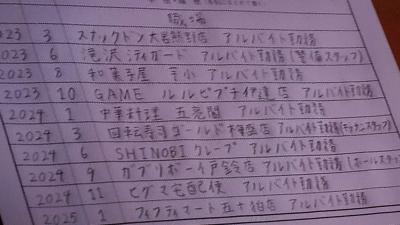 職場
2023 3 スナックトン大名熊野店 アルバイト勤務
2023 6 滝沢シティガード アルバイト勤務(警備スタッフ)
2023 8 和菓子屋 アルバイト勤務
2023 10 GAME ルルピプチ伊達店 アルバイト勤務
2024 1 中華料理 五亮閣 アルバイト勤務
2024 3 回転寿司ゴールド 店 アルバイト勤務(キッチンスタッフ)
2024 6 SHINOBIクレープ アルバイト勤務
2024 9 カプリボーイ戸鈴店 アルバイト勤務(ホールスタッフ)
2024 11 ヒグマ宅配便 アルバイト勤務
2025 1 フィフティマート五十狛店 アルバイト勤務